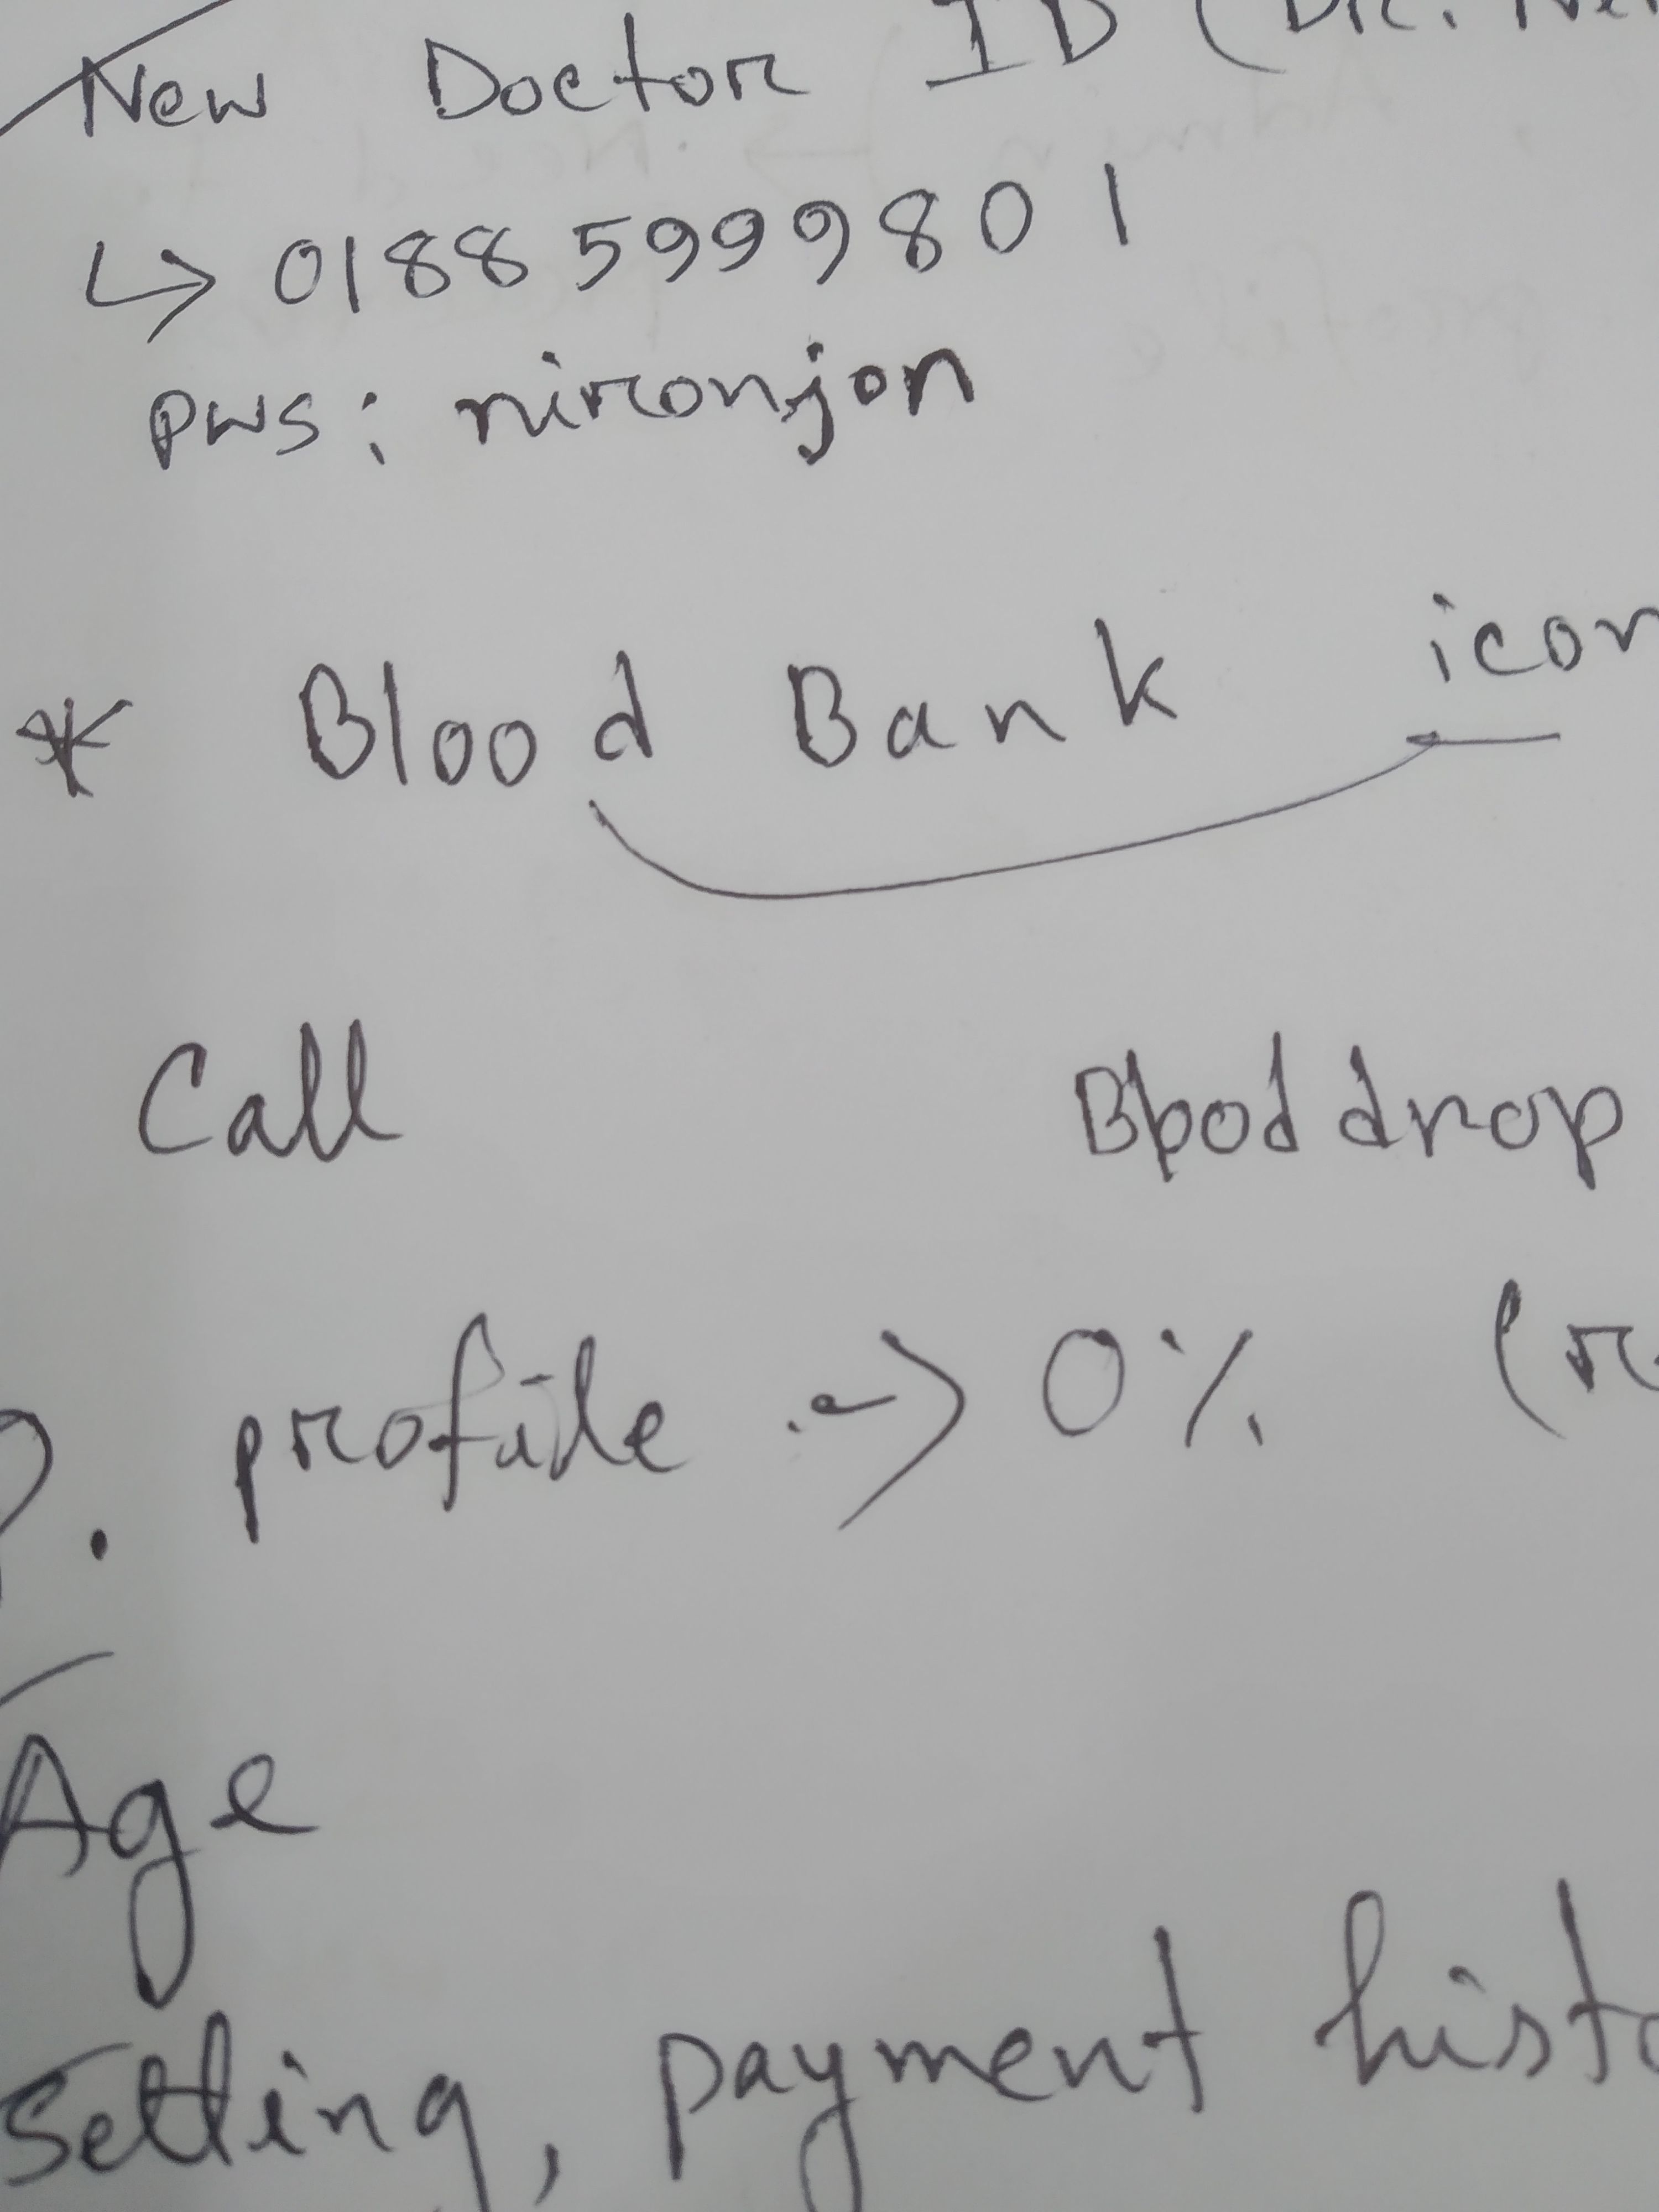 New Doctor ID (Dr.
↳ 01885999801
pws: nironjon
* Blood Bank icon
Call Blood drop
profile → 0% (
Age
setting, payment histo